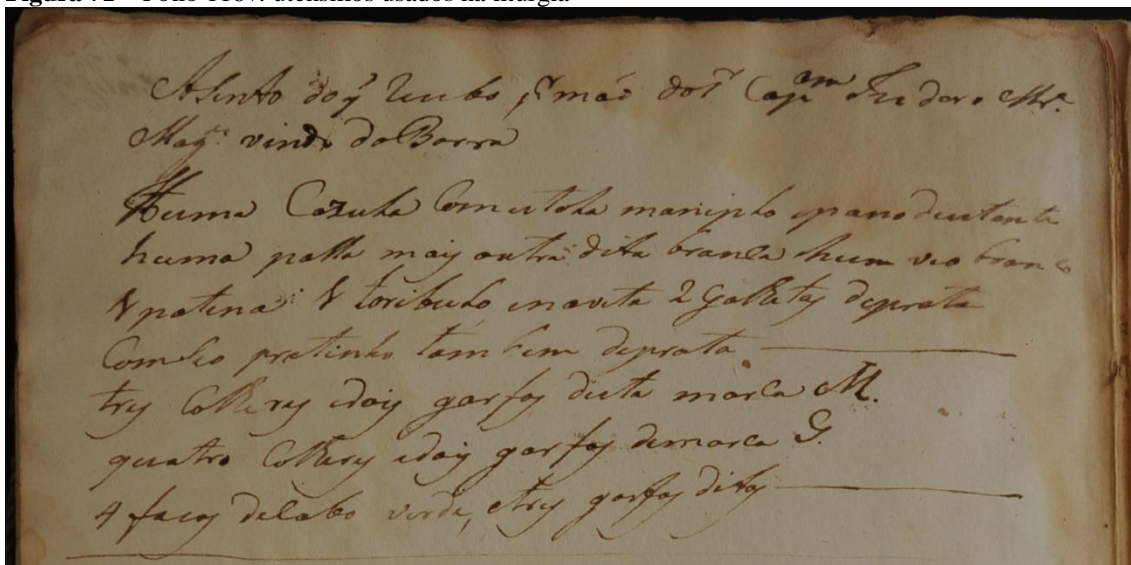 Asento do q̃ Recebo p.r mão do S.r Cap.am Izidoro Mr.a
Mag.es vindo da Barra
Huma Cazula Com estolla manipulo e pano de estante
huma palla mais outra dita branca hum veo branco
1 patina 1 toribulo e naveta 2 Galhetas de prata
Com seo pratinho tambem de prata
tres Colheres e dois garfos desta marca M.
quatro Colheres e dois garfos de marca G.
4 facas de Cabo verde, e tres garfos ditos